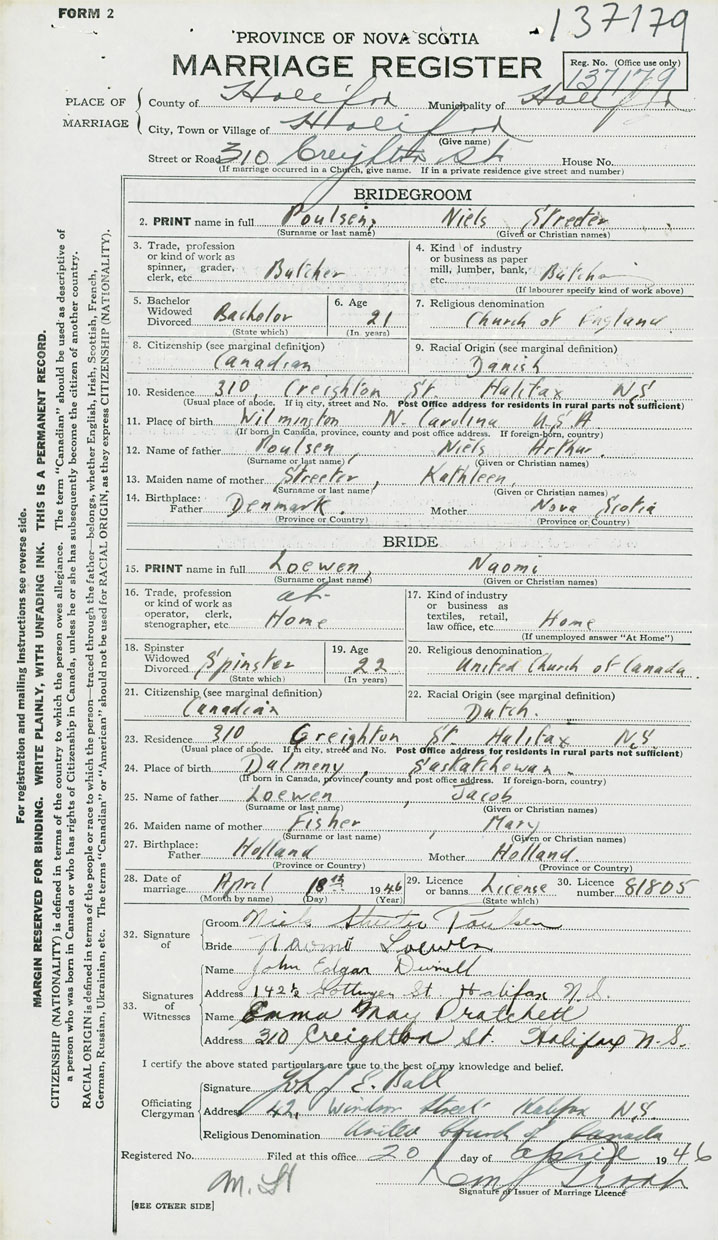 FORM 2
137179
PROVINCE OF NOVA SCOTIA
MARRIAGE REGISTER
Reg. No. (Office use only)
137179
PLACE OF MARRIAGE
County of Halifax Municipality of Halifax
City, Town or Village of Halifax
(Give name)
Street or Road 310 Creighton St. House No.
(If marriage occurred in a Church, give name. If in a private residence give street and number)
BRIDEGROOM
2. PRINT name in full Poulsen, Niels Streeter
(Surname or last name) (Given or Christian names)
3. Trade, profession or kind of work as spinner, grader, clerk, etc. Butcher
4. Kind of industry or business as paper mill, lumber, bank, etc.
(If labourer specify kind of work above)
5. Bachelor Widowed Divorced Bachelor
(State which)
6. Age 21
(In years)
7. Religious denomination Church of England
8. Citizenship (see marginal definition) Canadian
9. Racial Origin (see marginal definition) Danish
10. Residence 310, Creighton St. Halifax N.S
(Usual place of abode. If in city, street and No. Post Office address for residents in rural parts not sufficient)
11. Place of birth Wilmington N. Carolina U.S.A
(If born in Canada, province, county and post office address. If foreign-born, country)
12. Name of father Poulsen, Niels Arthur.
(Surname or last name) (Given or Christian names)
13. Maiden name of mother Streeter, Kathleen,
(Surname or last name) (Given or Christian names)
14. Birthplace: Father Denmark. Mother Nova Scotia
(Province or Country) (Province or Country)
BRIDE
15. PRINT name in full Loewen, Naomi
(Surname or last name) (Given or Christian names)
16. Trade, profession or kind of work as operator, clerk, stenographer, etc. at Home
17. Kind of industry or business as textiles, retail, law office, etc. Home
(If unemployed answer "At Home")
18. Spinster Widowed Divorced Spinster
(State which)
19. Age 22
(In years)
20. Religious denomination United Church of Canada.
21. Citizenship (see marginal definition) Canadian
22. Racial Origin (see marginal definition) Dutch.
23. Residence 310 Creighton St. Halifax N.S
(Usual place of abode. If in city, street and No. Post Office address for residents in rural parts not sufficient)
24. Place of birth Dalmeny, Saskatchewan.
(If born in Canada, province county and post office address. If foreign-born, country)
25. Name of father Loewen, Jacob
(Surname or last name) (Given or Christian names)
26. Maiden name of mother Fisher, Mary
(Surname or last name) (Given or Christian names)
27. Birthplace: Father Holland Mother Holland.
(Province or Country) (Province or Country)
28. Date of marriage April 18th 1946
(Month by name) (Day) (Year)
29. Licence or banns License
(State which)
30. Licence number 81805
32. Signature of
Groom Niels Streeter Poulsen
Bride Naomi Loewen
33. Signatures of Witnesses
Name John Edgar
Address 142½ Gottingen St Halifax N.S.
Name Emma May Pratchett
Address 310 Creighton St. Halifax N.S.
I certify the above stated particulars are true to the best of my knowledge and belief.
Officiating Clergyman
Signature E. Ball
Address 42, Windsor Street Halifax N.S.
Religious Denomination United Church of Canada
Registered No. Filed at this office 20 day of April 1946
Signature of Issuer of Marriage Licence
[SEE OTHER SIDE]
For registration and mailing instructions see reverse side.
MARGIN RESERVED FOR BINDING. WRITE PLAINLY, WITH UNFADING INK. THIS IS A PERMANENT RECORD.
CITIZENSHIP (NATIONALITY) is defined in terms of the country to which the person owes allegiance. The term "Canadian" should be used as descriptive of
a person who was born in Canada or who has rights of Citizenship in Canada, unless he or she has subsequently become the citizen of another country.
RACIAL ORIGIN is defined in terms of the people or race to which the person—traced through the father—belongs, whether English, Irish, Scottish, French,
German, Russian, Ukrainian, etc. The terms "Canadian" or "American" should not be used for RACIAL ORIGIN, as they express CITIZENSHIP (NATIONALITY).